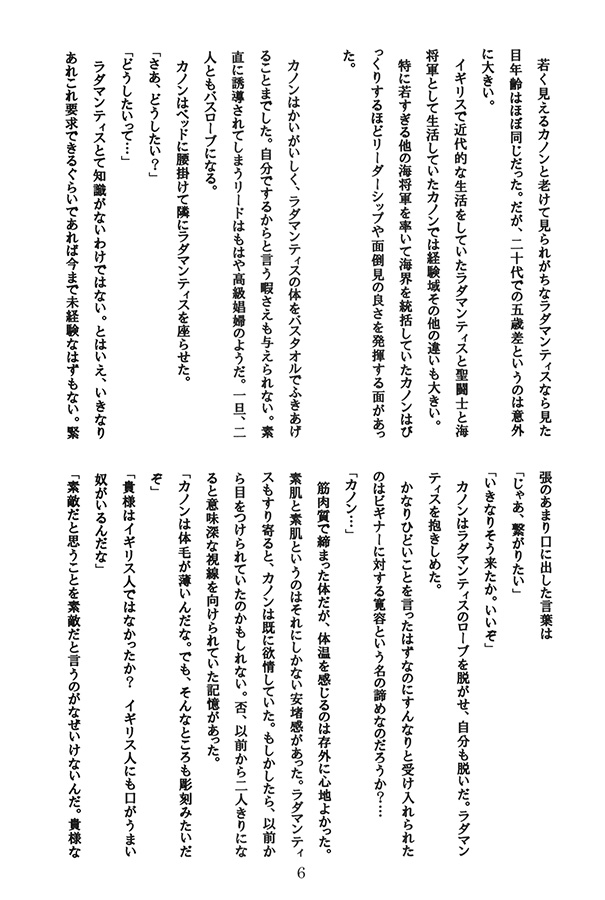 若く見えるカノンと老けて見られがちなラダマンティスなら見た
目年齢はほぼ同じだった。だが、二十代での五歳差というのは意外
に大きい。
イギリスで近代的な生活をしていたラダマンティスと聖闘士と海
将軍として生活していたカノンでは経験域その他の違いも大きい。
特に若すぎる他の海将軍を率いて海界を統括していたカノンはび
っくりするほどリーダーシップや面倒見の良さを発揮する面があっ
た。
カノンはかいがいしく、ラダマンティスの体をバスタオルでふきあげ
ることまでした。自分でするからと言う暇さえも与えられない。素
直に誘導されてしまうリードはもはや高級娼婦のようだ。一旦、二
人ともバスローブになる。
カノンはベッドに腰掛けて隣にラダマンティスを座らせた。
「さあ、どうしたい?」
「どうしたいって…」
ラダマンティスとて知識がないわけではない。とはいえ、いきなり
あれこれ要求できるぐらいであれば今まで未経験なはずもない。緊
張のあまり口に出した言葉は
「じゃあ、繋がりたい」
「いきなりそう来たか。いいぞ」
カノンはラダマンティスのローブを脱がせ、自分も脱いだ。ラダマン
ティスを抱きしめた。
かなりひどいことを言ったはずなのにすんなりと受け入れられた
のはビギナーに対する寛容という名の諦めなのだろうか?…
「カノン…」
筋肉質で締まった体だが、体温を感じるのは存外に心地よかった。
素肌と素肌というのはそれにしかない安堵感があった。ラダマンティ
スもすり寄ると、カノンは既に欲情していた。もしかしたら、以前か
ら目をつけられていたのかもしれない。否、以前から二人きりにな
ると意味深な視線を向けられていた記憶があった。
「カノンは体毛が薄いんだな。でも、そんなところも彫刻みたいだ
ぞ」
「貴様はイギリス人ではなかったか? イギリス人にも口がうまい
奴がいるんだな」
「素敵だと思うことを素敵だと言うのがなぜいけないんだ。貴様な
6